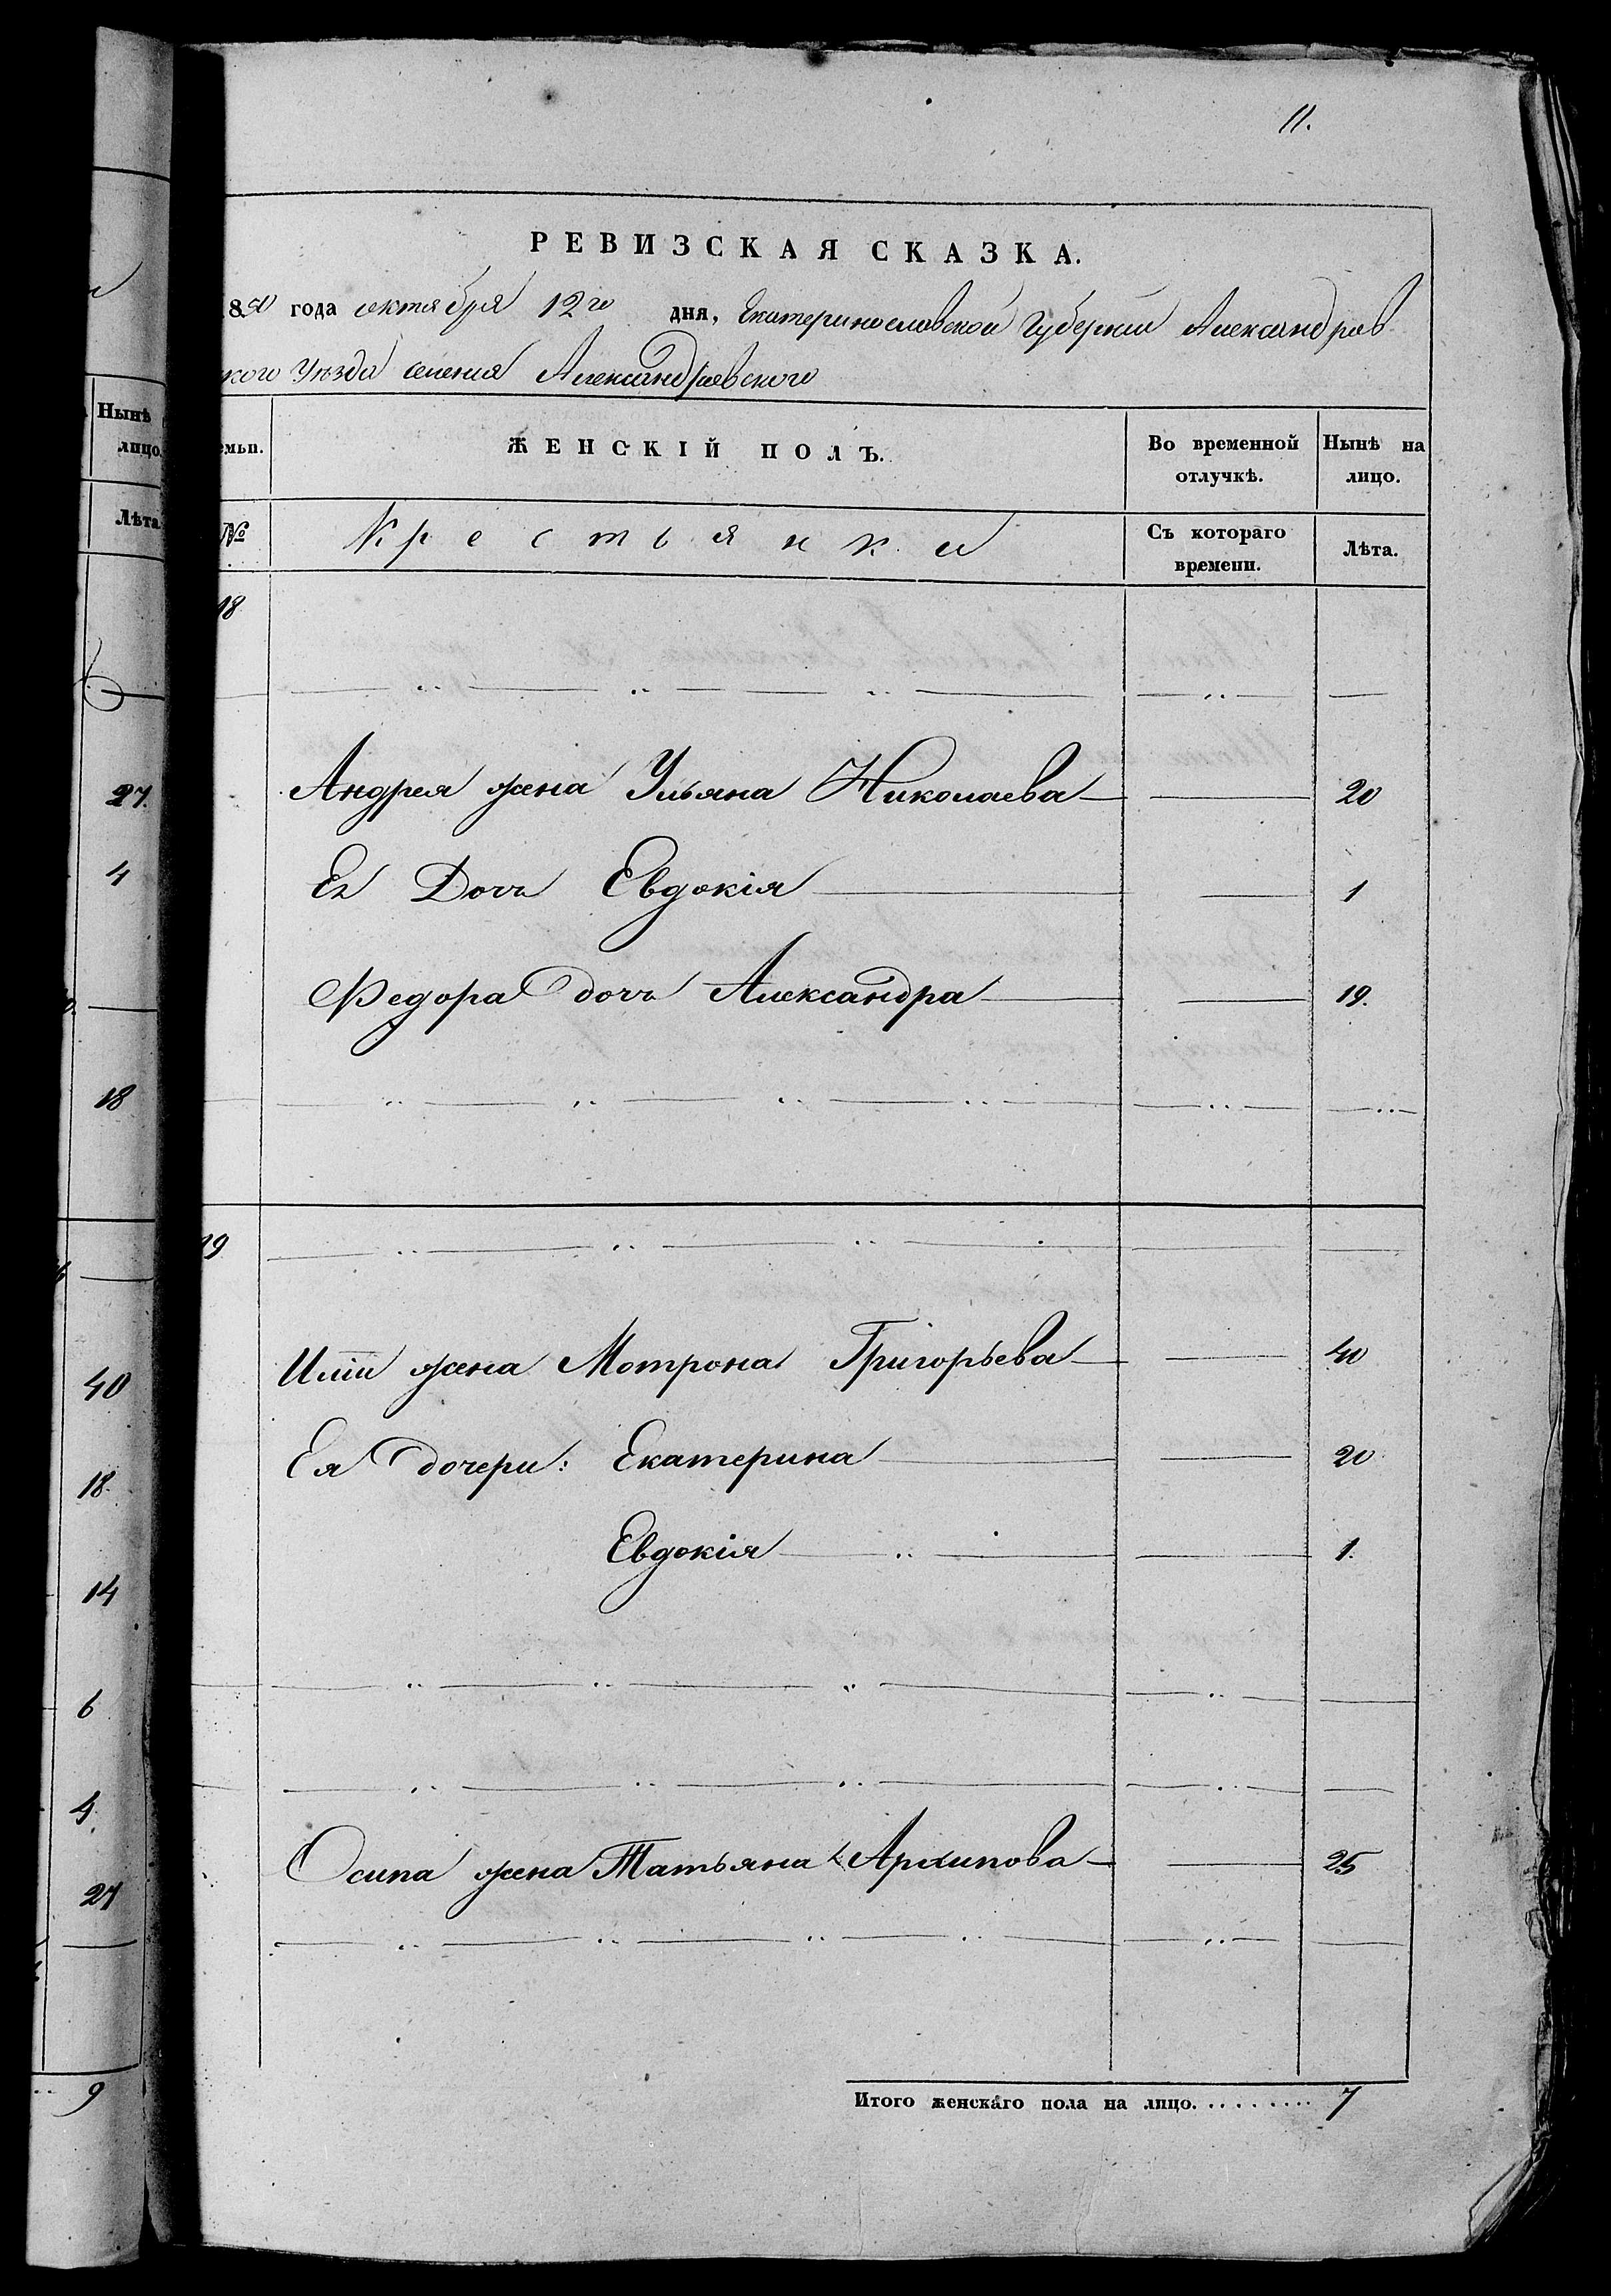 11.
РЕВИЗСКАЯ СКАЗКА.
года октября 12го дня, Екатеринославской Губернии Александров
кого Уѣзда селения Александровского
емьи. ЖЕНСКІЙ ПОЛЪ. Во временной отлучкѣ. Нынѣ на лицо.
№ Крестьянки Съ котораго времени. Лѣта.
18
Андрея жена Ульяна Николаева 20
Ея Дочь Евдокія 1
Федора дочь Александра 19.
19
Иліи жена Мотрона Григорьева 40
Ея дочери: Екатерина 20
Евдокія 1.
Осипа жена Татьяна Архипова 25
Итого женскаго пола на лицо. 7
Нынѣ
лицо.
Лѣта
27.
4
18
40
18.
14
6
4.
27
9